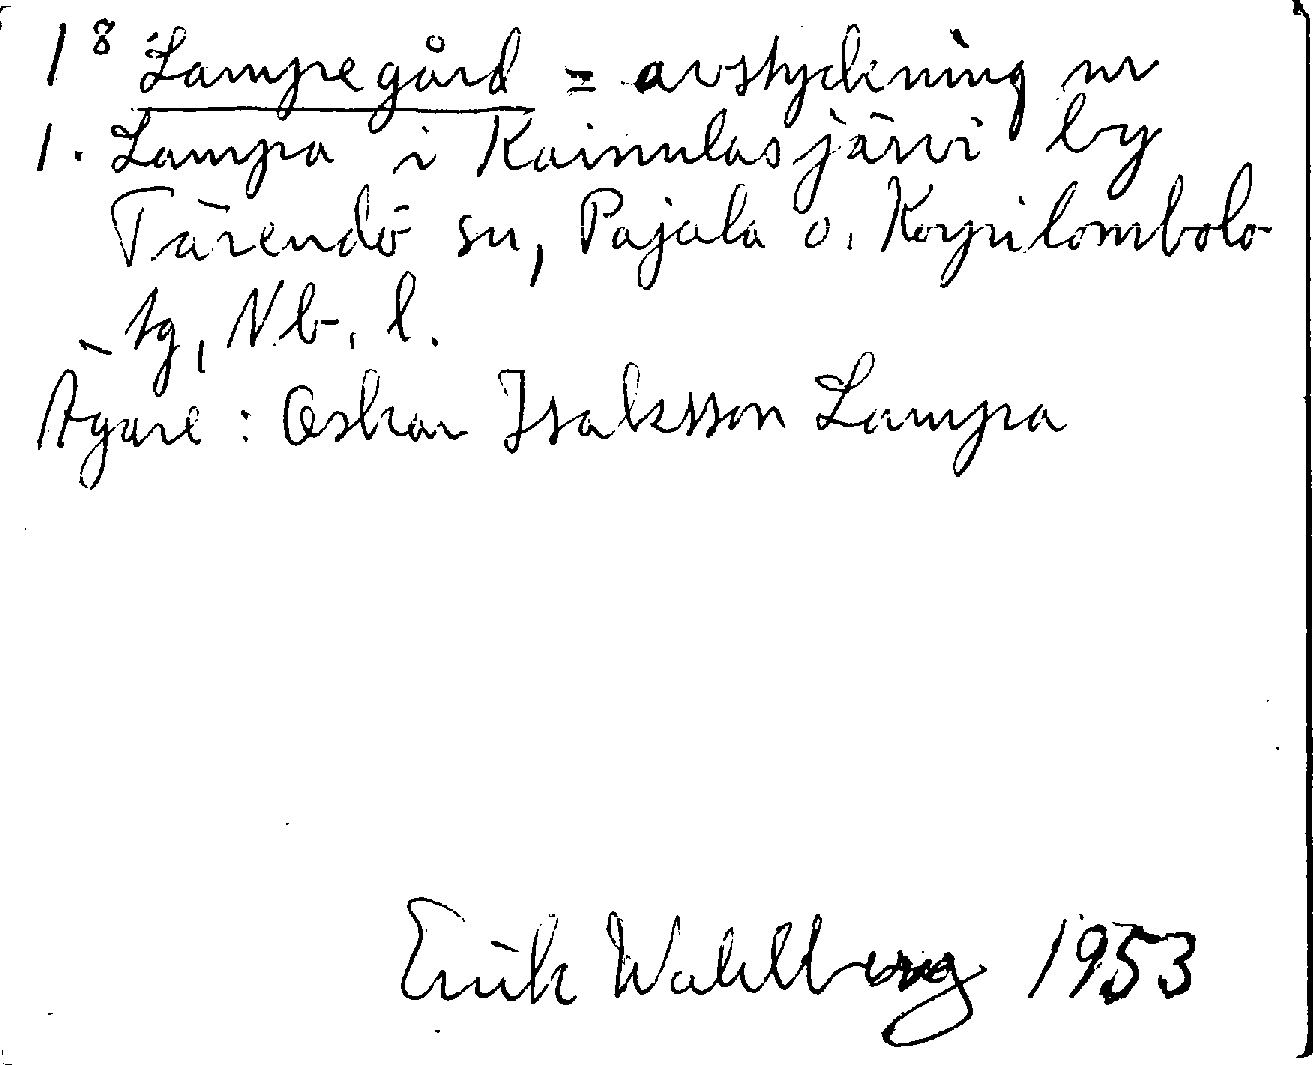 1⁸ Lampegård = avstyckning nr
1. Lampa i Kainulasjärvi by
Tärendö sn, Pajala o. Korpilombolo
tg, Nb. l.
Ägare : Oskar Isaksson Lampa
Erik Wahlberg 1953